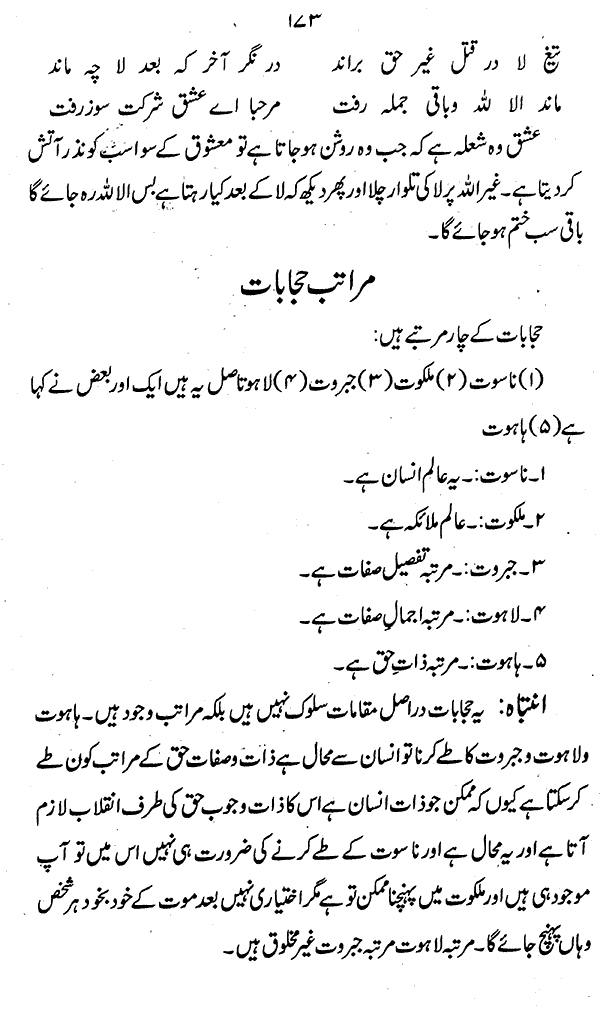 ۱۷۳
تیغ لا در قتل غیر حق براند در نگر آخر کہ بعد لا چہ ماند
ماند الا للہ وباقی جملہ رفت مرحبا اے عشق شرکت سوز رفت
عشق وہ شعلہ ہے کہ جب وہ روشن ہو جاتا ہے تو معشوق کے سوا سب کو نذر آتش
کر دیتا ہے۔ غیر اللہ پر لا کی تلوار چلا اور پھر دیکھ کہ لا کے بعد کیا رہتا ہے بس الا للہ رہ جائے گا
باقی سب ختم ہو جائے گا۔
مراتب حجابات
حجابات کے چار مرتبے ہیں:
(۱) ناسوت (۲) ملکوت (۳) جبروت (۴) لاہوتاصل یہ ہیں ایک اور بعض نے کہا
ہے (۵) ہاہوت
۱۔ ناسوت:۔ یہ عالم انسان ہے۔
۲۔ ملکوت:۔ عالم ملائکہ ہے۔
۳۔ جبروت:۔ مرتبہ تفصیل صفات ہے۔
۴۔ لاہوت:۔ مرتبہ اجمالِ صفات ہے۔
۵۔ ہاہوت:۔ مرتبہ ذاتِ حق ہے۔
انتباہ: یہ حجابات دراصل مقامات سلوک نہیں ہیں بلکہ مراتب وجود ہیں۔ ہاہوت
ولاہوت وجبروت کا طے کرنا تو انسان سے محال ہے ذات وصفات حق کے مراتب کون طے
کر سکتا ہے کیوں کہ ممکن جو ذات انسان ہے اس کا ذات وجوب حق کی طرف انقلاب لازم
آتا ہے اور یہ محال ہے اور ناسوت کے طے کرنے کی ضرورت ہی نہیں اس میں تو آپ
موجود ہی ہیں اور ملکوت میں پہنچنا ممکن تو ہے مگر اختیاری نہیں بعد موت کے خود بخود ہر شخص
وہاں پہنچ جائے گا۔ مرتبہ لاہوت مرتبہ جبروت غیر مخلوق ہیں۔